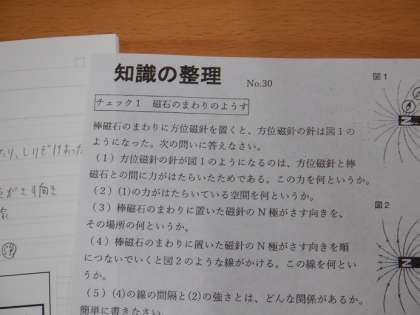 知識の整理 No.30
チェック1 磁石のまわりのようす
棒磁石のまわりに方位磁針を置くと、方位磁針の針は図1の
ようになった。次の問いに答えなさい。
(1)方位磁針の針が図1のようになるのは、方位磁針と棒
磁石との間に力がはたらいたためである。この力を何というか。
(2)(1)の力がはたらいている空間を何というか。
(3)棒磁石のまわりに置いた磁針のN極がさす向きを、
その場所の何というか。
(4)棒磁石のまわりに置いた磁針のN極がさす向きを順
につないでいくと図2のような線がかける。この線を何とい
うか。
(5)(4)の線の間隔と(2)の強さとは、どんな関係があるか。
簡単に書きなさい。
図1
N
図2
N